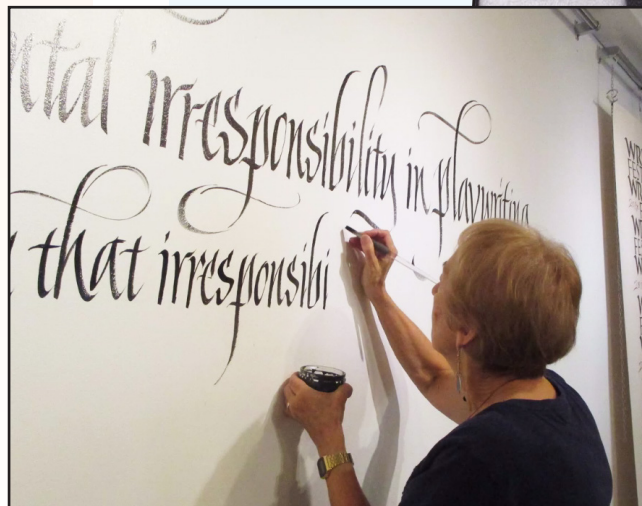 ntal irresponsibility in playwriting
that irresponsibi